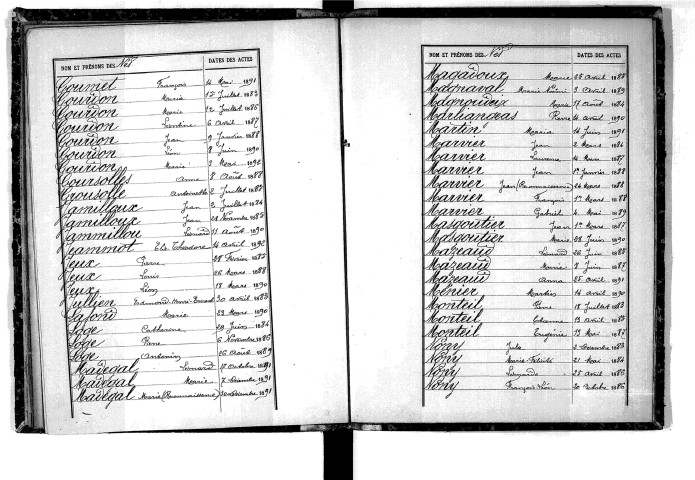 NOM ET PRÉNOMS DES Nés DATES DES ACTES
Coumet François 4 Mai 1891
Courdon Marie 12 Juillet 1883
Courdon Marie 12 Juillet 1885
Courdon Léontine 6 Avril 1887
Courdon Jean 9 Janvier 1888
Courdon Léon 8 Juin 1890
Courdon Marie 3 Mars 1892
Coursolles Anne 8 Août 1888
Crousolle Antoinette 2 Juillet 1888
Jamilloux Jean 2 Juillet 1884
Jamilloux Jean 28 Novembre 1885
Jammillou Léonard 11 Août 1890
Jeammot Théodore 14 Avril 1892
Jeux Pierre 28 Février 1883
Jeux Louis 26 Mars 1888
Jeux Léon 18 Mars 1890
Jullien Edmond Henri Ernest 30 Avril 1883
Lafond Marie 23 Mars 1890
Loge Catherine 29 Juin 1884
Loge Pierre 6 Novembre 1886
Loge Antonin 26 Août 1889
Madegal Léonard 18 Octobre 1891
Madegal Marie 7 Décembre 1891
Madegal Marie (Reconnaissance) 20 Décembre 1891
NOM ET PRÉNOMS DES Nés DATES DES ACTES
Magadoux Marie 28 Avril 1888
Magnaval 3 Avril 1889
Magnoudeix Marie 17 Avril 1884
Marhangeas Pierre 14 Avril 1890
Martin Maria 14 Juin 1891
Marvier Jean 2 Mars 1884
Marvier 14 Mars 1887
Marvier Jean 1er Janvier 1888
Marvier Jean (Reconnaissance) 24 Mars 1888
Marvier François 1er Mars 1888
Marvier Gabriel 4 Mai 1889
Masgoutier Jean 1er Mars 1887
Masgoutier Marie 28 Juin 1890
Mazeaud Léonard 26 Juin 1885
Mazeaud Marie 8 Juin 1887
Mazeaud Anna 25 Avril 1891
Ménier 14 Avril 1890
Monteil Pierre 18 Juillet 1883
Monteil 13 Avril 1883
Monteil Eugénie 13 Mai 1887
Nony Jules 2 Décembre 1883
Nony Marie 21 Mai 1884
Nony Léonarde 28 Avril 1886
Nony François Léon 20 Octobre 1886